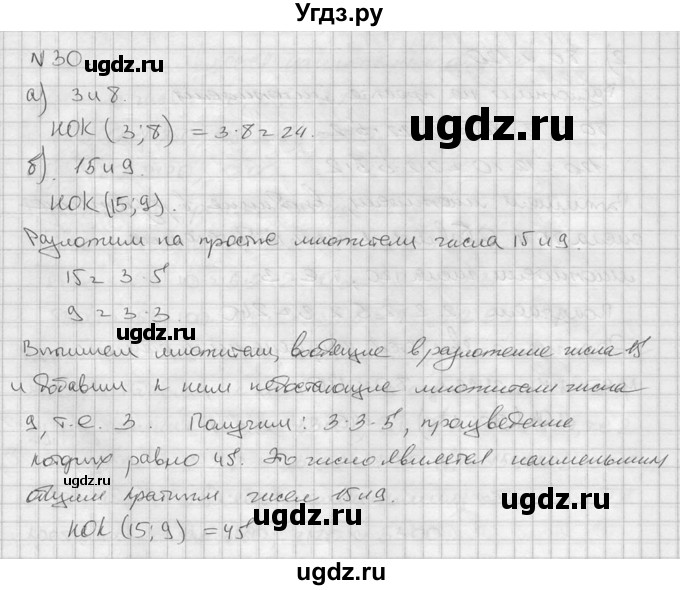 Угдз.ру
N 30
ugdz.ru
а) 3 и 8.
НОК (3; 8) = 3·8 = 24.
ugdz.ru
б). 15 и 9.
НОК (15; 9).
ugdz.ru
Разложим на простые множители числа 15 и 9.
15 = 3·5
9 = 3·3.
ugdz.ru
Выпишем множители, входящие в разложение числа 15
и добавим к ним недостающие множители числа
9, т.е. 3. Получим: 3·3·5, произведение
ugdz.ru
которых равно 45. Это число является наименьшим
общим кратным чисел 15 и 9.
ugdz.ru
ugdz.ru
НОК (15; 9) = 45
ugdz.ru